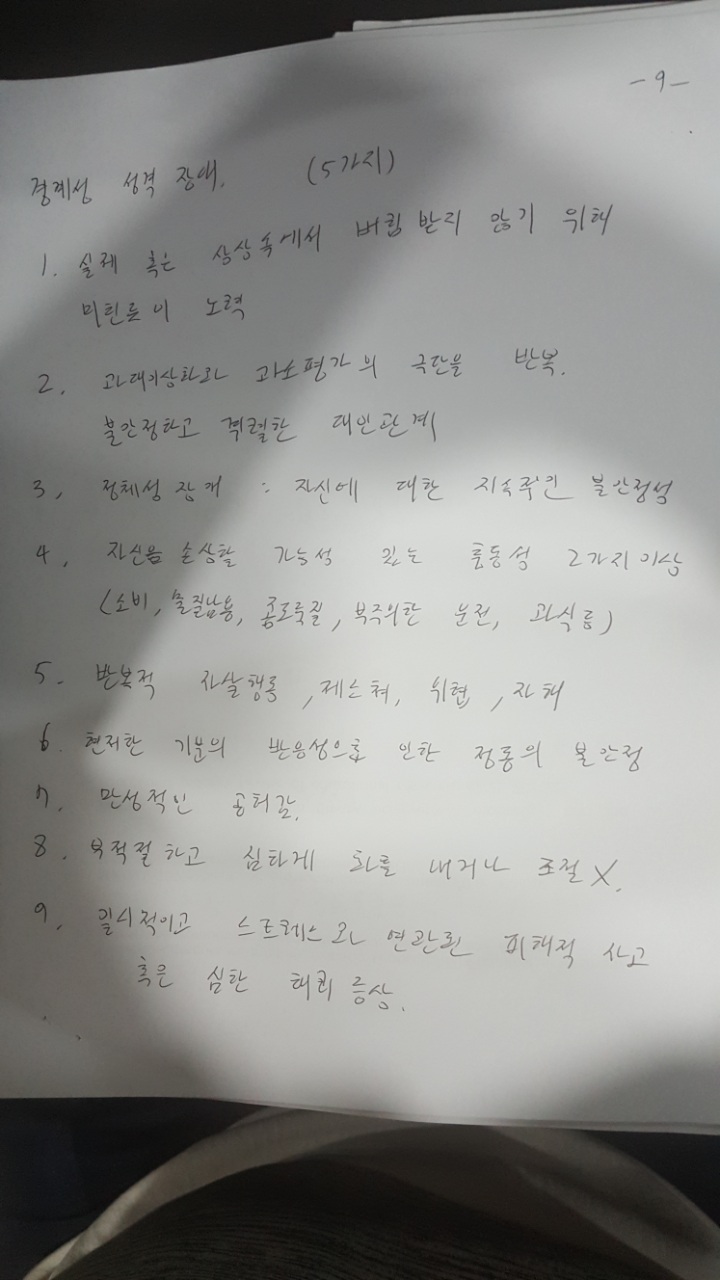 - 9 -
경계성 성격 장애. (5가지)
1. 실제 혹은 상상속에서 버림 받지 않기 위해
미친듯이 노력
2. 과대이상화와 과소평가의 극단을 반복.
불안정하고 격렬한 대인관계
3. 정체성 장애 : 자신에 대한 지속적인 불안정성
4. 자신을 손상할 가능성 있는 충동성 2가지 이상
(소비, 물질남용, 좀도둑질, 부주의한 운전, 과식 등)
5. 반복적 자살행동, 제스쳐, 위협, 자해
6. 현저한 기분의 반응성으로 인한 정동의 불안정
7. 만성적인 공허감.
8. 부적절하고 심하게 화를 내거나 조절 X.
9. 일시적이고 스트레스와 연관된 피해적 사고
혹은 심한 해리 증상.